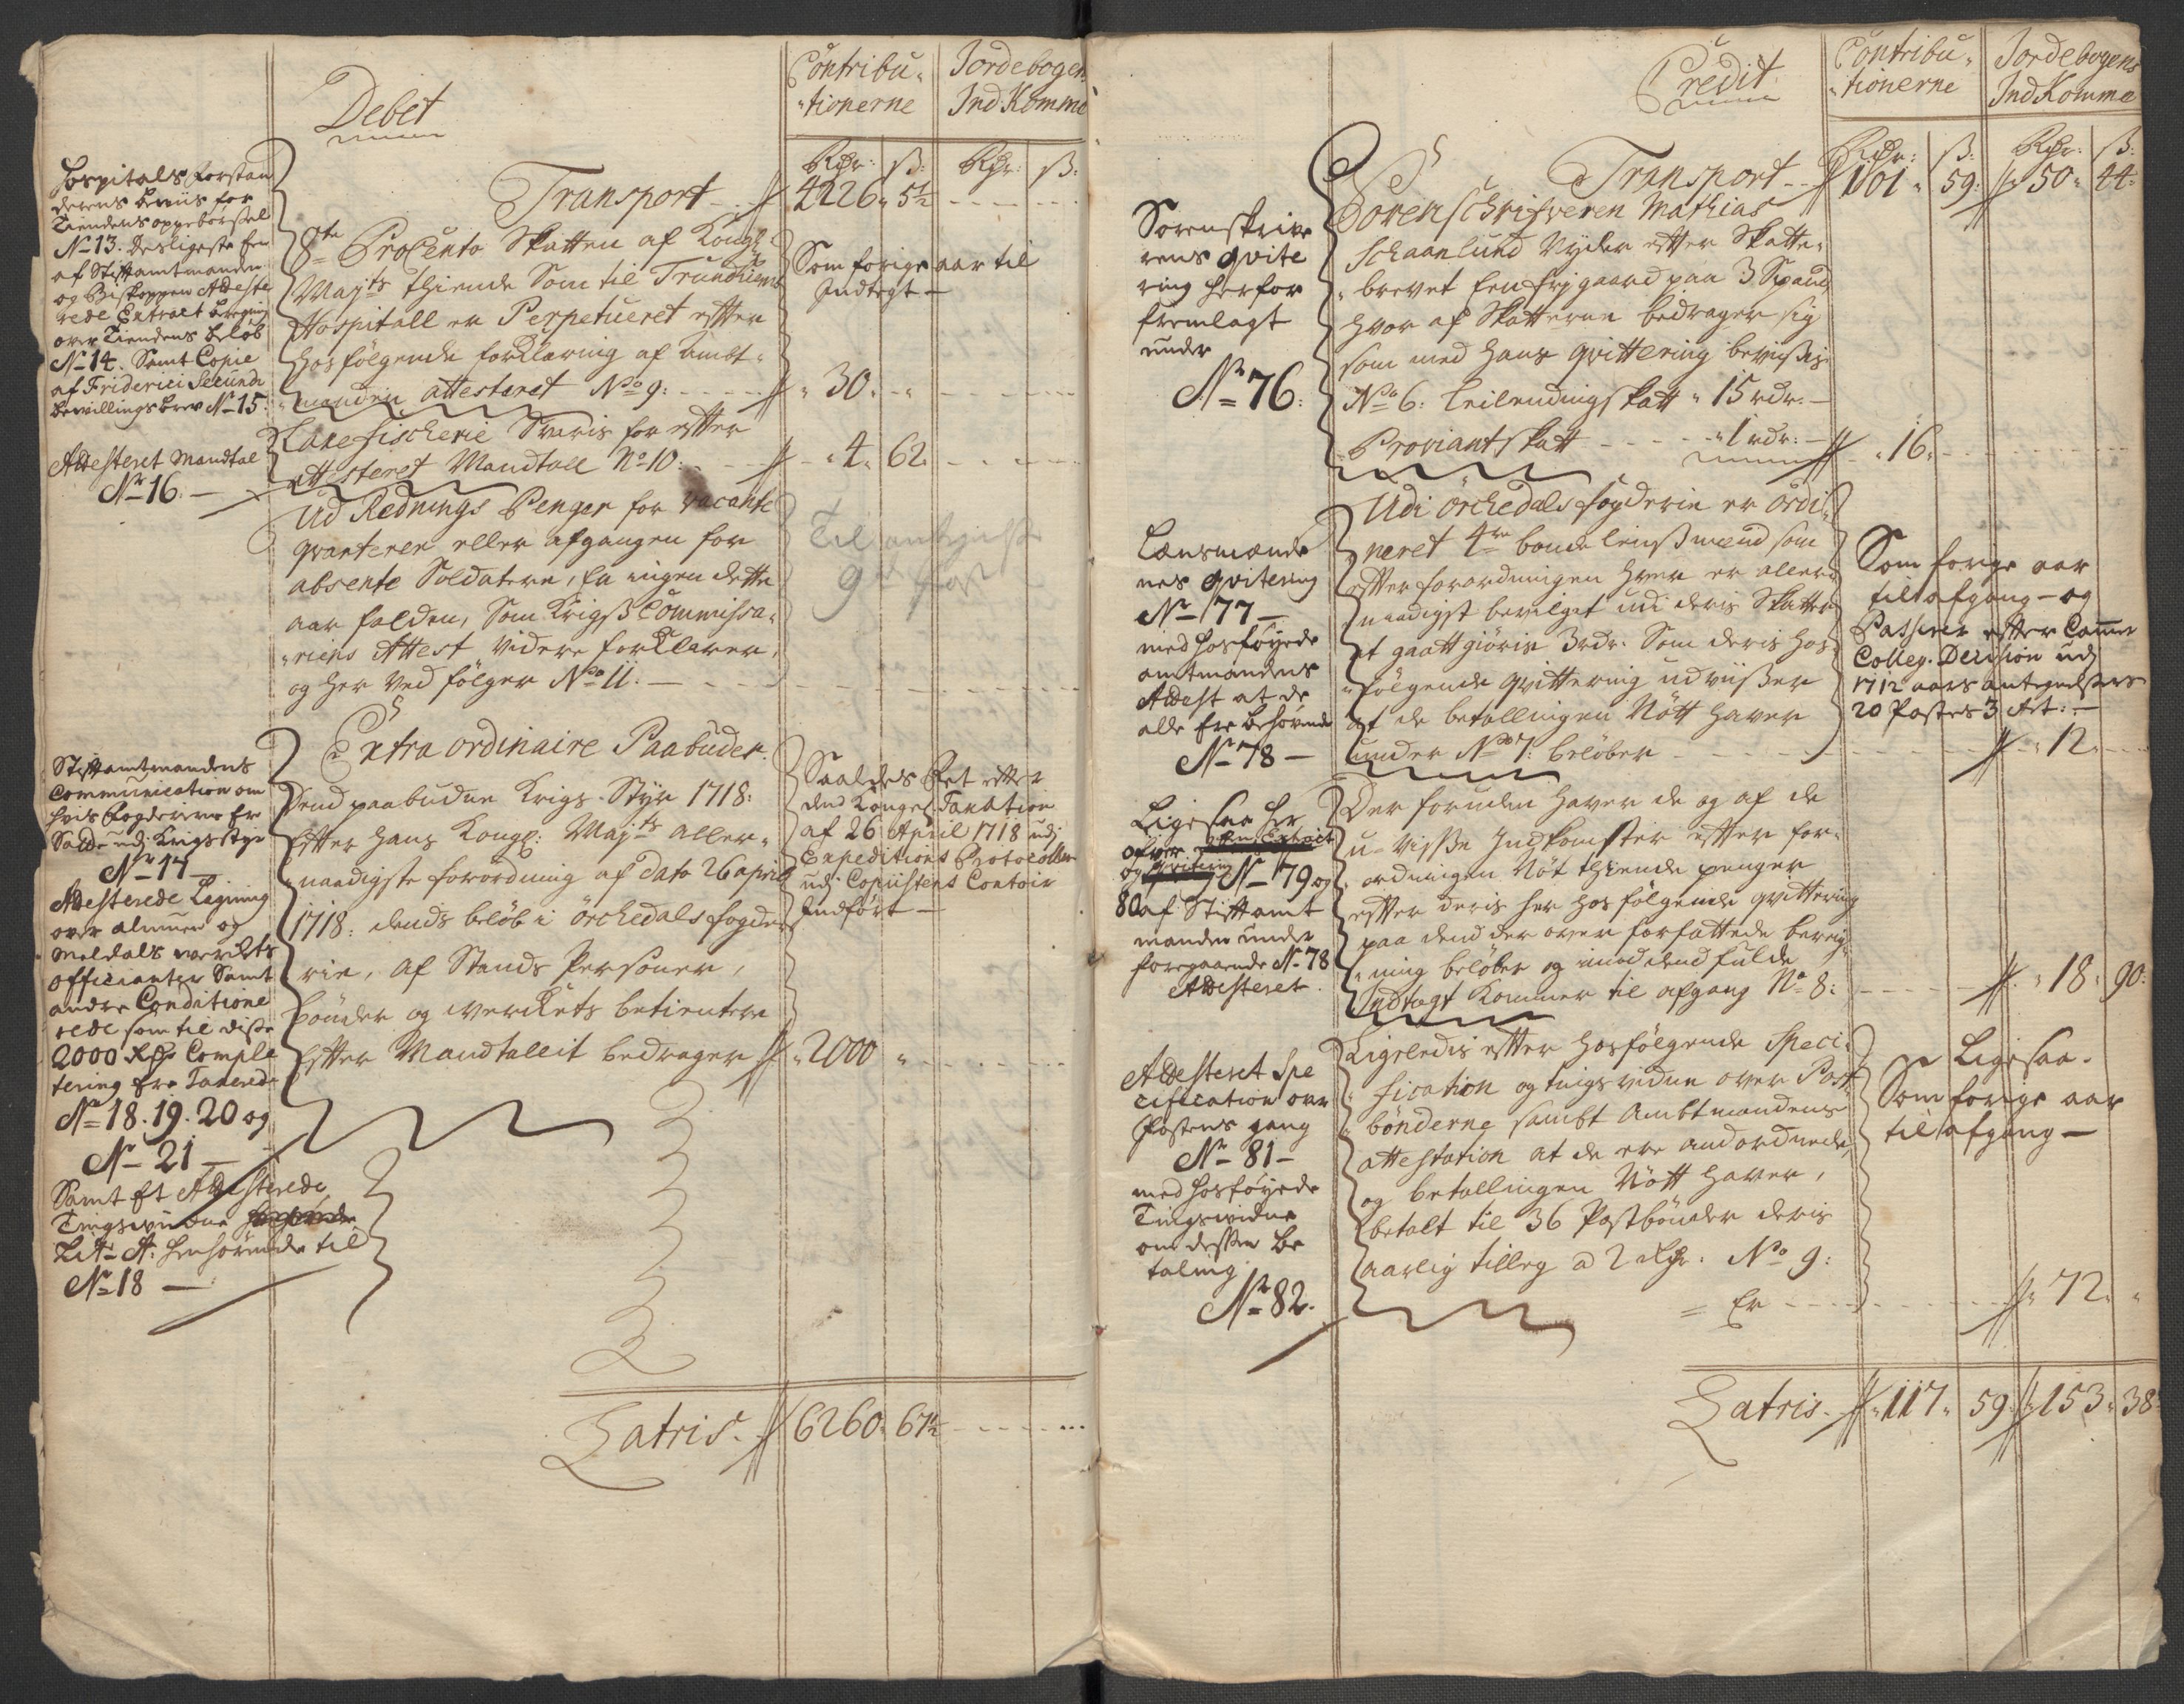 Debet
Contribu-
tionerne
Jordebogens
IndKomme
Rdr: ß: Rdr: ß:
Hospitals Forstan
derens beviis for
Tiendens oppebørsel
No 13. Desligeste En
af Stiftamtmanden
og Biskoppen Atteste
rede Extract
over Tiendens beløb
No 14. Samt Copie
af Friderici Secundi
bevillings brev No 15.
Transport 4226. 5½
8te ProCento Skatten af Kongl:
Mayts thiende Som til Trundhiems
Hospitall er Perpetueret efter
hosfølgende forklaring af Ambt-
manden attesteret No 9: 30.
Som forige aar til
Indtegt
Attesteret Mandtal
No 16.
Laxefischerie Svaris for efter
attesteret Mandtall No 10: 4. 62.
Ud Rednings Penger for vacante
qvarterer eller afgangen for
absente Soldatere, Er ingen dette
aar falden, Som Krigß Commissa-
riens Attest videre forklarer,
og her ved følger No 11.
Til antegnelse
9de Post
Extra ordinaire Paabuder.
Stiftamtmandens
Communication om
hvis Fogderiern er
Satte udj Krigsstyr
No 17
Attesterede Ligning
over almuen og
Meldals werckts
officianter Samt
andre Conditione
rede som til disse
2000 Rdr Comple
tering ere Taxered
No 18. 19. 20 og
No 21
Samt Et Attesterede
Tingsvidne
Litr A: henhørende til
No 18
Dend paabudne Krigs Styr 1718:
Efter Hans Kongl: Mayts Aller-
naadigste forordning af dato 26 april
1718: dends beløb i Örchedals fogde-
rie, af Stands Personer,
bønder og werckets betientere
Efter Mandtallit bedrager 2000
Saaledes Set efter
dend Kongel. Taxation
af 26 April 1718 udj
Expeditions Protocollen
udj Copiistens Contoir
Indført
Latris. 6260. 67½
Credit
Contribu-
tionerne
Jordebogens
IndKomme
Rdr: ß: Rdr: ß:
Transport 101. 59. 50. 44.
Sorenskrive
rens qvite
ring herfor
fremlagt
under
No 76.
Sorenschrifveren Mathias
Schaanlund Nyder efter Skatte-
brevet En frj gaard paa 3 Spand
hvor af Skatterne bedrager sig
som med hans qvittering bevisis
No 6: Leilendingskatt 15 rdr.
Proviantskatt 1 rdr: 16.
Lænsmænde
nes qvitering
No 77
med hosføyede
amtmandens
Attest at de
alle ere behøvende
No 78
Udi Örchedals fogderie er ordi-
neret 4re bonde lenßmend som
efter forordningen hver er aller-
naadigst bevilget udi deris Skatter
at gaatgiøris 3 rdr. Som deris hos-
følgende qvittering udviißer
at de betallingen Nött haver
under No 7: beløber 12.
Som forige aar
til afgang og
Passerer efter Camer
Colleg. Decision udj
1712 aars antegnelsers
20 Postes 3 Art:
Ligesaa her
ofver
og No 79 og
80 af Stiftamt
manden under
foregaaende No 78
Attesteret.
Der foruden haver de og af de
u-visse Indkomster efter for-
ordningen Nöt thiende penger
efter deris her hosfølgende qvittering
paa dend der over forfattede bereg-
ning beløber og imod dend fulde
Indtegt kommer til afgang No 8: 18. 90.
Attesteret Spe
cification over
Postens gang
No 81
med hosføyede
Tingsvidne
om dessen be
taling
No 82.
Ligeledis efter hosfølgende Speci-
fication og tingsvidne over Post-
bønderne sambt Ambtmandens
attestation at de ere andordnede
og betallingen Nött haver,
betalt til 36 Postbønder deris
aarlig tilleg a 2 Rdr. No 9:
Er 72.
Ligesaa.
Som forige aar
til afgang
Latris. 117. 59. 153. 38.